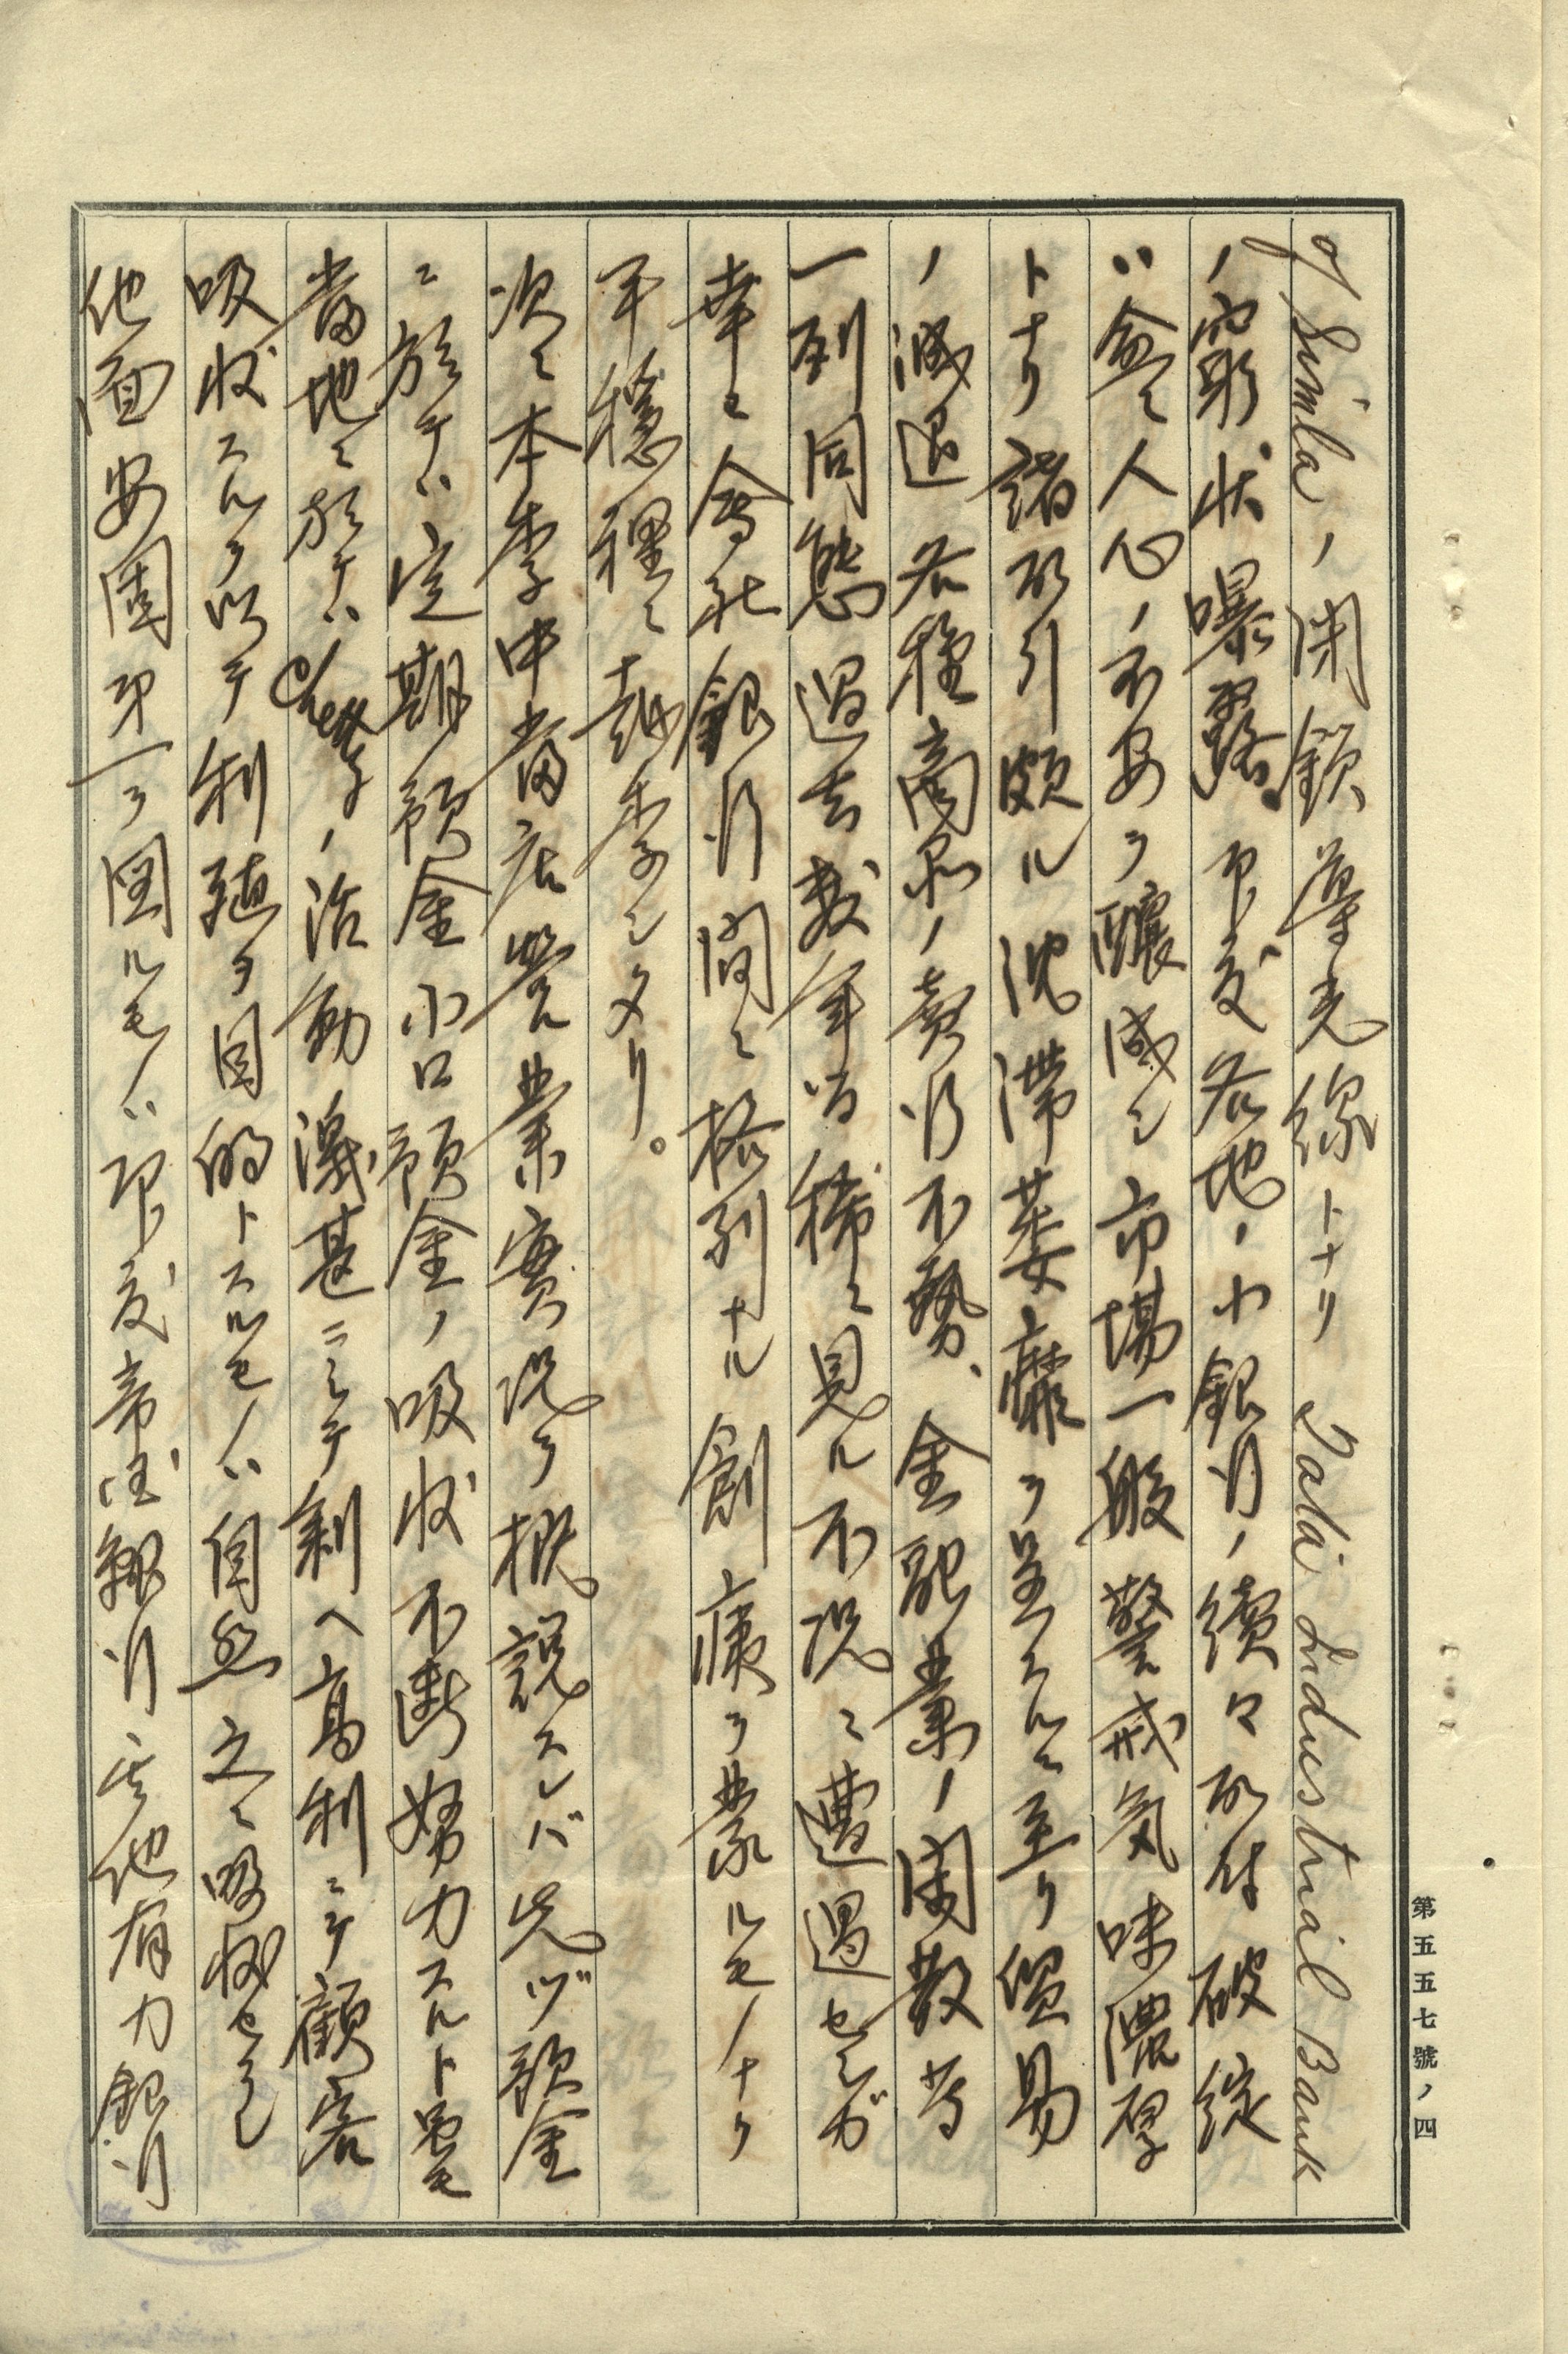 of Simla ノ閉鎖導火線トナリ Tata Industrial Bank
ノ窮状曝露、印度各地ノ小銀行ノ続々取付破綻
ハ益々人心ノ不安ヲ醸成シ市場一般警戒気味濃厚
トナリ諸取引頗ル沈滞萎靡ヲ呈スルニ至リ貿易
ノ減退各種商品ノ売行不勢、金融業ノ閑散等
一列同態過去数年間稀ニ見ル不況ニ遭遇セシガ
幸ニ会社銀行間ニ格別ナル創痍ヲ蒙ルモノナク
平穏裡ニ越季シタリ。
次ニ本季中当店営業実況ヲ概説スレバ先ヅ預金
ニ於テハ定期預金小口預金ノ吸収不断努力スルト雖モ
当地ニ於テハ Chetty ノ活動激甚ニシテ剰ヘ高利ニテ顧客
吸収スルヲ以テ利殖ヲ目的トスルモノハ自然之ニ吸収セラレ
他面安固第一ヲ図ルモノハ印度帝国銀行其他有力銀行
第五五七號ノ四